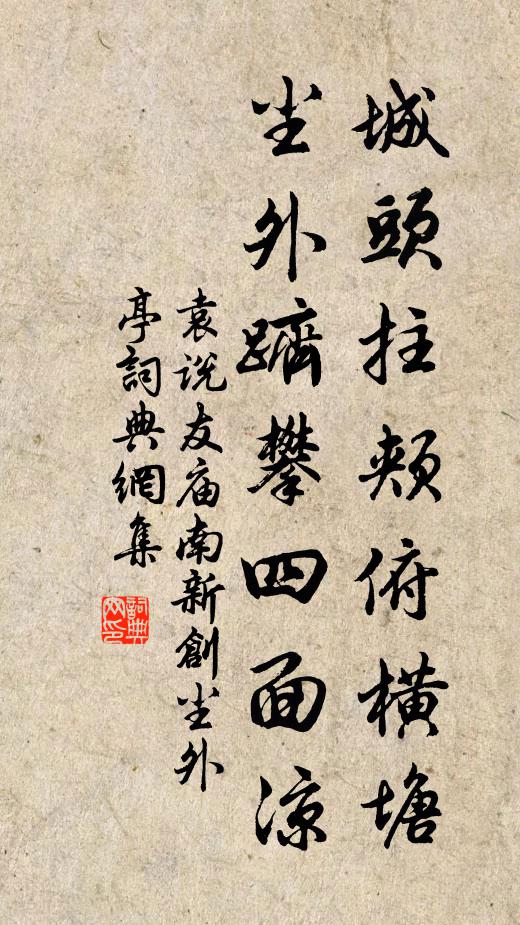 城頭拄頰俯橫塘
尘外躋攀四面凉
袁说友庙南新創尘外
亭詞典網集
詞典网印